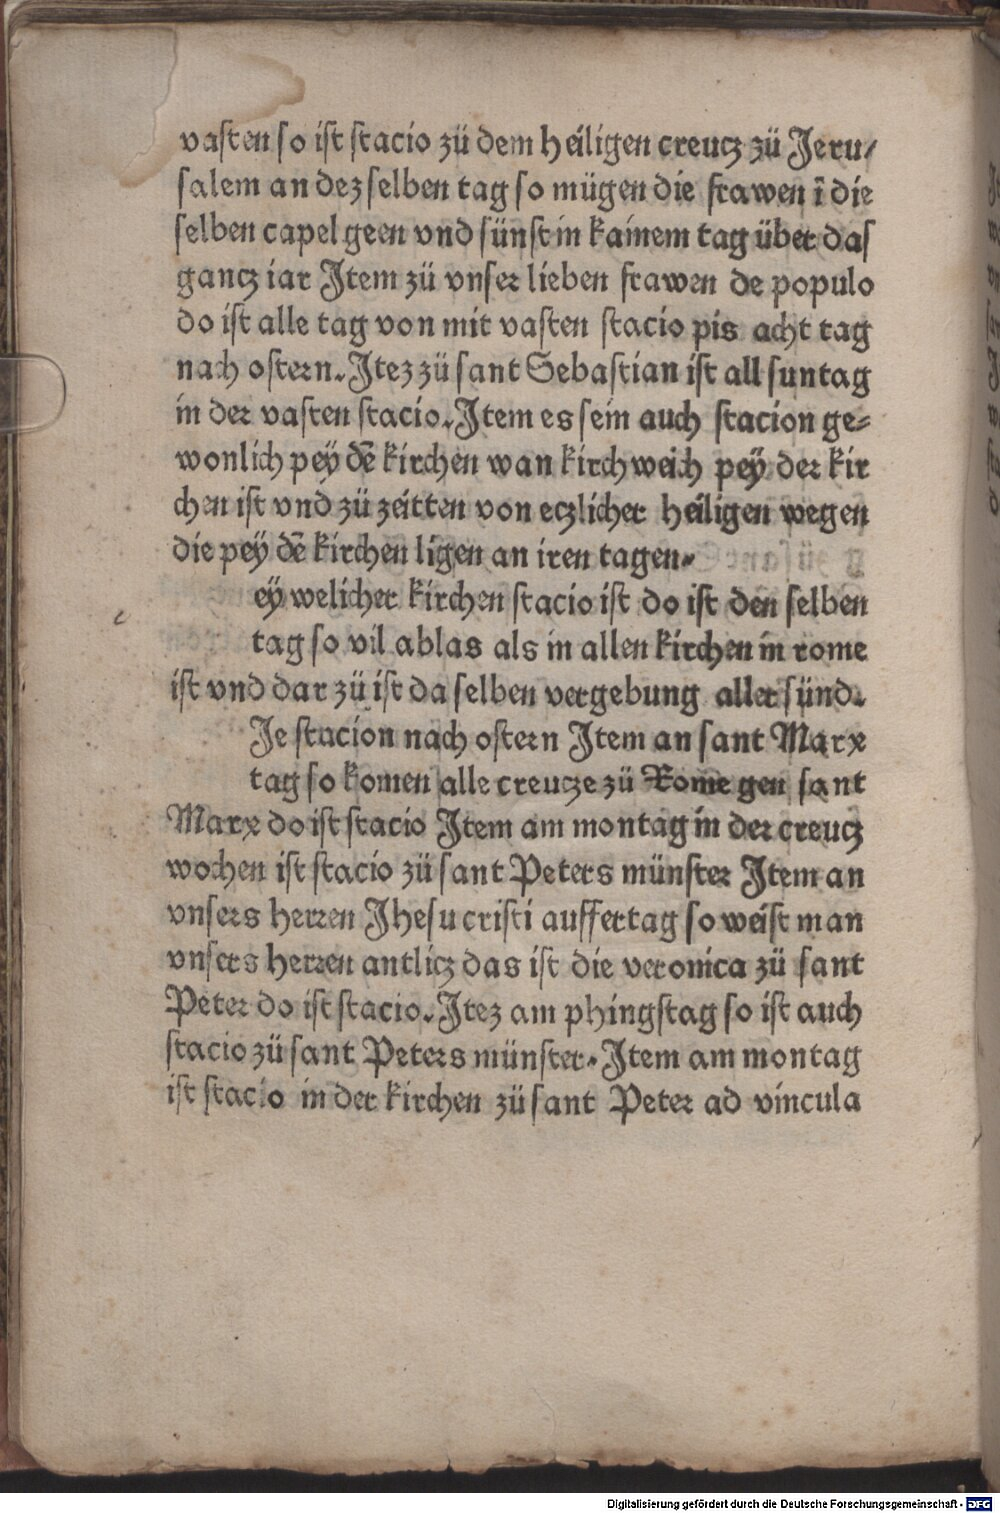 vasten so ist stacio zü dem heiligen creucz zü Jeru/
salem an dez selben tag so mügen die frawen ī die
selben capel geen vnd sünst in kainem tag über das
gancz iar Item zü vnser lieben frawen de populo
do ist alle tag von mit vasten stacio pis acht tag
nach ostern. Itez zü sant Sebastian ist all suntag
in der vasten stacio. Item es sein auch stacion ge=
wonlich peÿ dē kirchen wan kirchweich peÿ der kir
chen ist vnd zü zeitten von eczlicher heiligen wegen
die peÿ dē kirchen ligen an iren tagen.
eÿ welicher kirchen stacio ist do ist den selben
tag so vil ablas als in allen kirchen in rome
ist vnd dar zü ist da selben vergebung aller sünd.
Je stacion nach ostern Item an sant Marx
tag so komen alle creucze zü Rome gen sant
Marx do ist stacio Item am montag in der creucz
wochen ist stacio zü sant Peters münster Item an
vnsers herren Jhesu cristi auffertag so weist man
vnsers herren antlicz das ist die veronica zü sant
Peter do ist stacio. Itez am phingstag so ist auch
stacio zü sant Peters münster. Item am montag
ist stacio in der kirchen zü sant Peter ad vincula
Digitalisierung gefördert durch die Deutsche Forschungsgemeinschaft - DFG